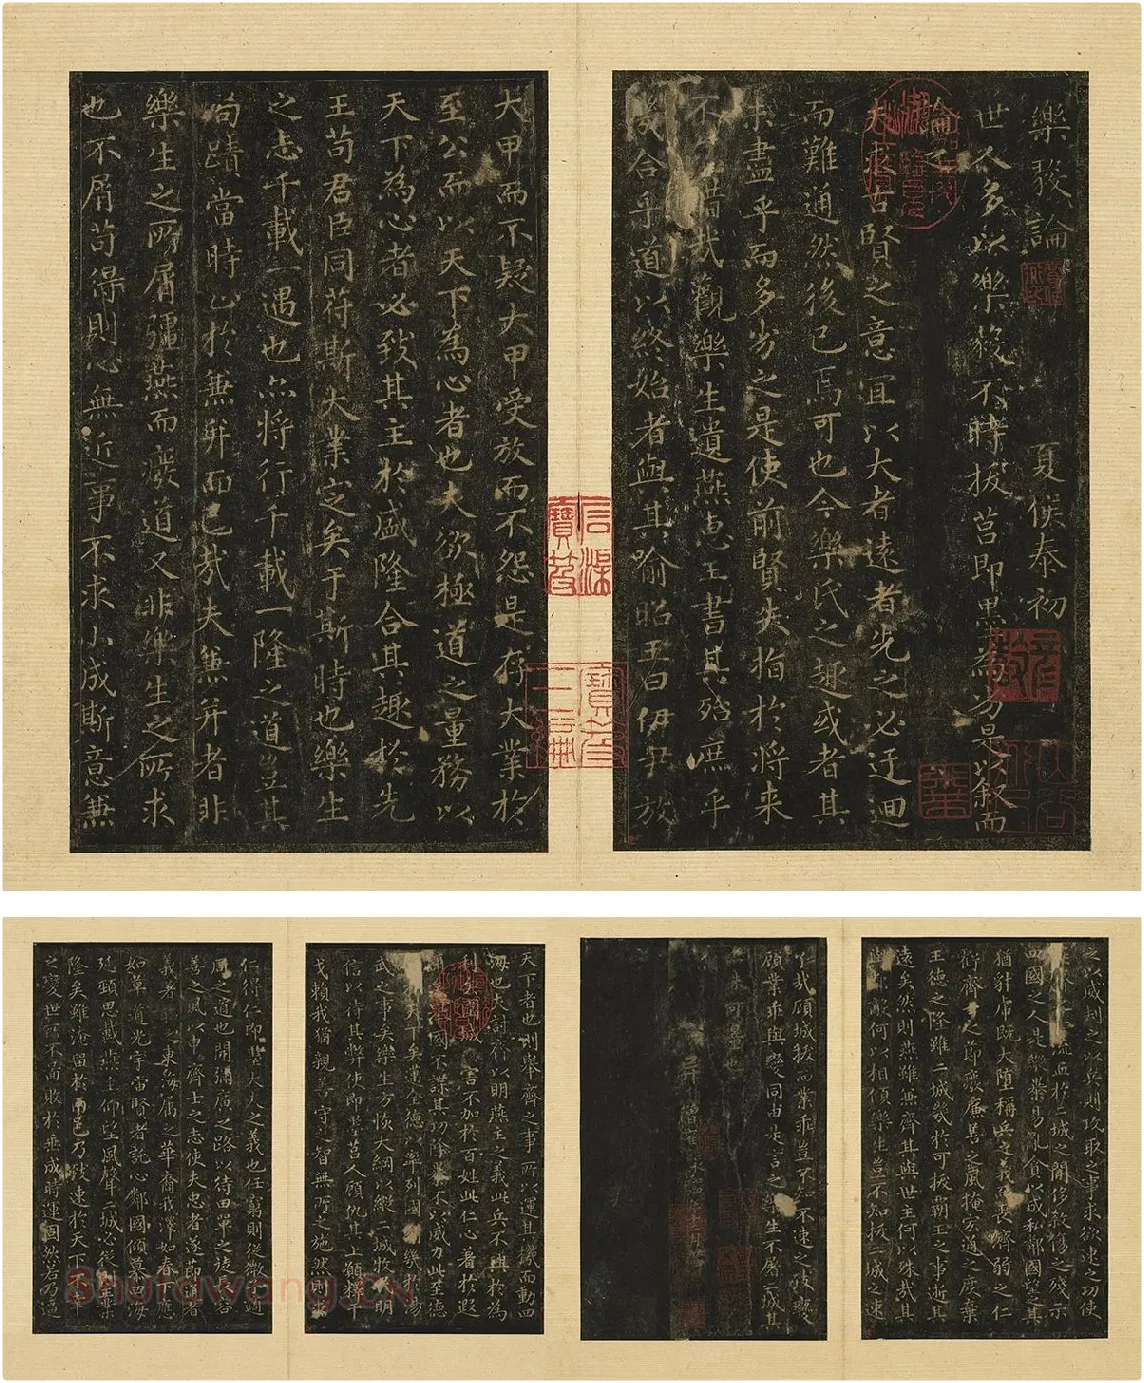 樂毅論 夏侯泰初
世人多以樂毅不時拔莒即墨為劣是以叙而
論之
夫求古賢之意宜以大者遠者先之必迂迴
而難通然後已焉可也今樂氏之趣或者其
未盡乎而多劣之是使前賢失指於將來
不亦惜哉觀樂生遺燕惠王書其殆庶乎
機合乎道以終始者與其喻昭王曰伊尹放
大甲而不疑大甲受放而不怨是存大業於
至公而以天下為心者也夫欲極道之量務以
天下為心者必致其主於盛隆合其趣於先
王苟君臣同符斯大業定矣于斯時也樂生
之志千載一遇也亦將行千載一隆之道豈其
局蹟當時止於兼并而已哉夫兼并者非
樂生之所屑彊燕而廢道又非樂生之所求
也不屑苟得則心無近事不求小成斯意兼
天下者也則舉齊之事所以運其機而動四
海也夫討齊以明燕主之義此兵不興於為
利矣圍城而害不加於百姓此仁心著於遐
邇矣舉國不謀其功除暴不以威力此至德
令於天下矣邁全德以率列國則幾於湯
武之事矣樂生方恢大綱以縱二城收民明
信以待其弊使即墨莒人顧仇其上願釋干
戈賴我猶親善守之智無所之施然則求
仁得仁即墨大夫之義也任窮則從微子適
周之道也開彌廣之路以待田單之徒長容
善之風以申齊士之志使夫忠者遂節通者
義著昭之東海屬之華裔我澤如春下應
如草道光宇宙賢者託心鄰國傾慕四海
延頸思戴燕主仰望風聲二城必從則王業
隆矣雖淹留於兩邑乃致速於天下不幸
之變世所不圖敗於垂成時運固然若乃逼
之以威劫之以兵則攻取之事求欲速之功使
燕齊之士流血於二城之間侈殺傷之殘示
四國之人是縱暴易亂貪以成私鄰國望之其
猶豺虎既大墮稱兵之義而喪濟弱之仁
虧齊士之節廢廉善之風掩宏通之度棄
王德之隆雖二城幾於可拔霸王之事逝其
遠矣然則燕雖兼齊其與世主何以殊哉其
與鄰敵何以相傾樂生豈不知拔二城之速
了哉顧城拔而業乖豈不知不速之致變
顧業乖與變同由是言之樂生不屠二城其
亦未可量也
Shufawang.CN